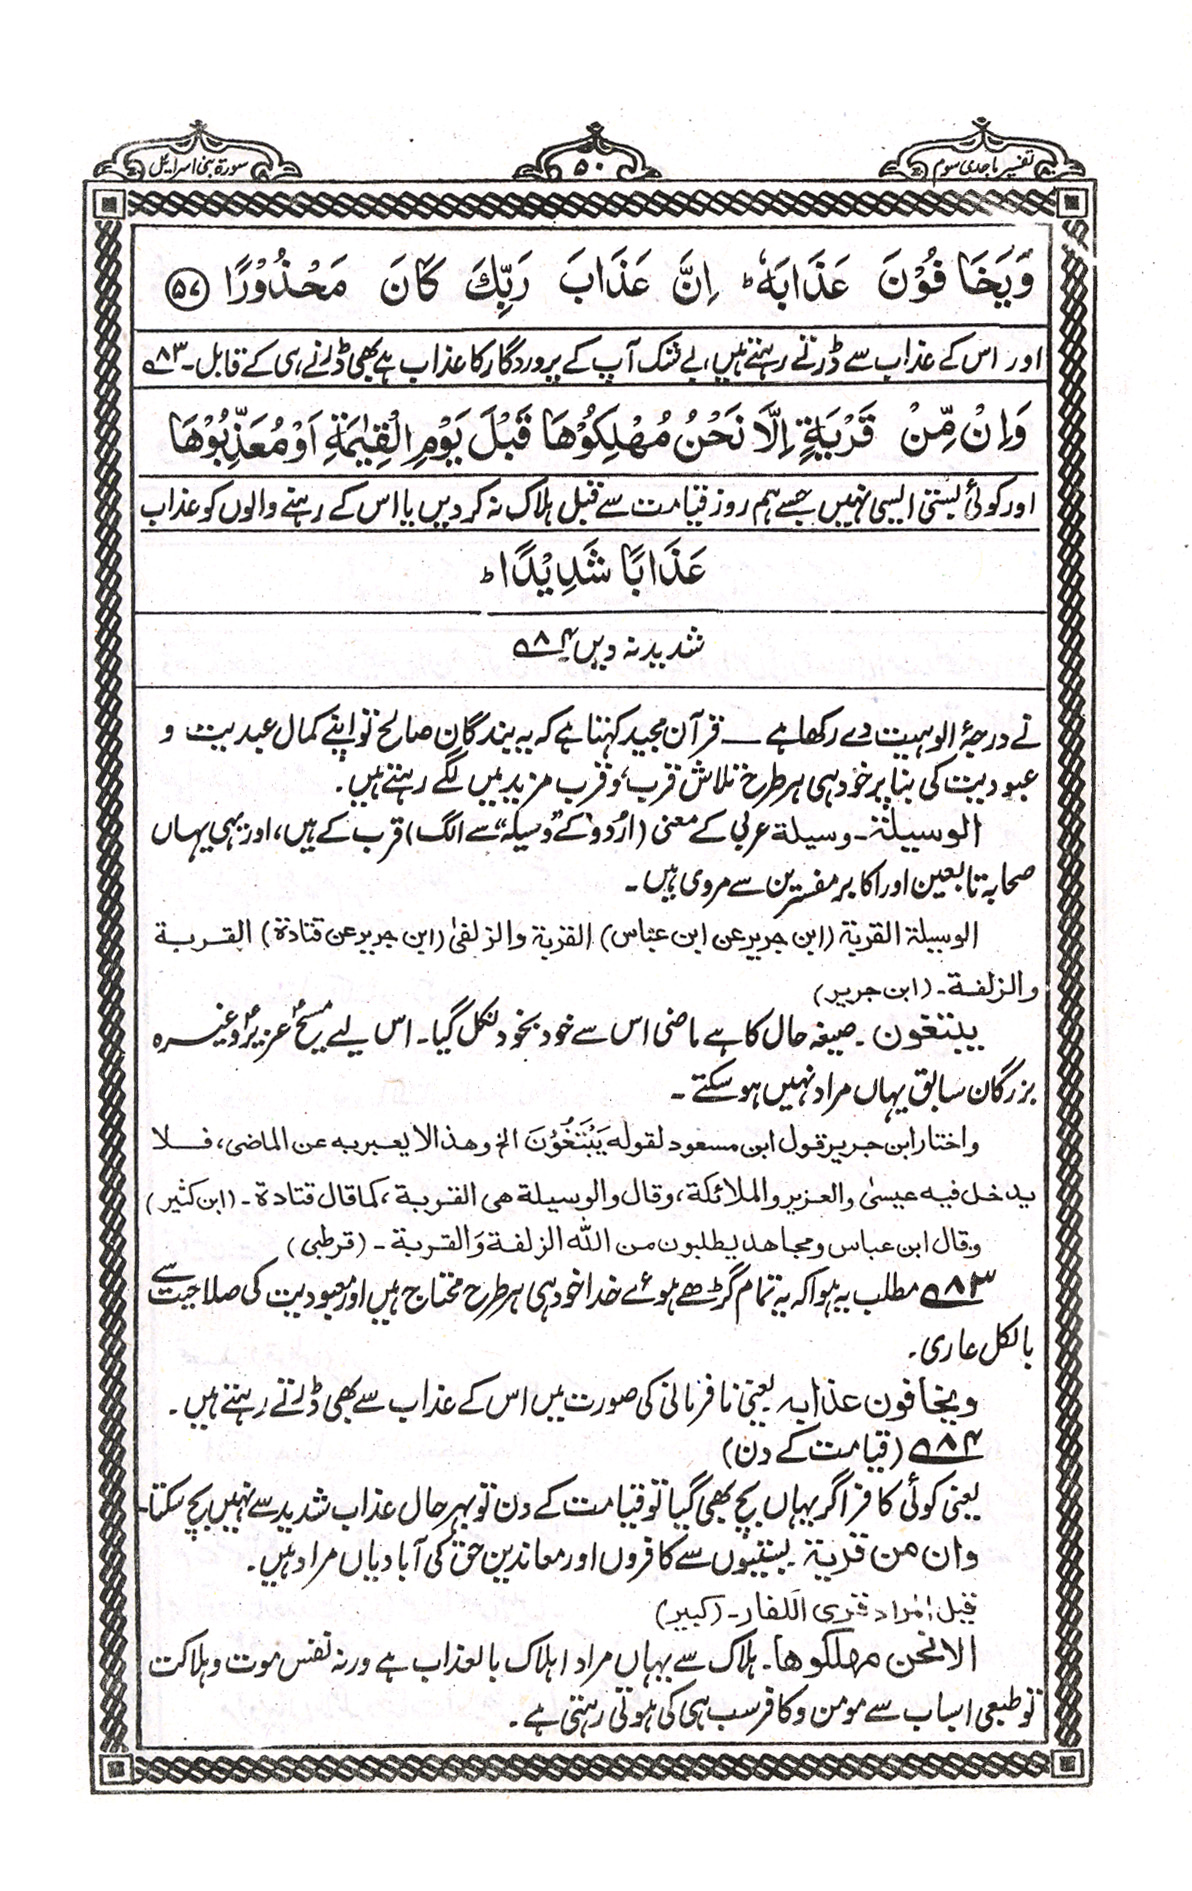 تفسیر ماجدی سوم
۵۰
سورۃ بنی اسرائیل
وَيَخَافُوْنَ عَذَابَهٗ ؕ اِنَّ عَذَابَ رَبِّكَ كَانَ مَحْذُوْرًا ﴿۵۷﴾
اور اس کے عذاب سے ڈرتے رہتے ہیں، بے شک آپ کے پروردگار کا عذاب ہے بھی ڈرنے ہی کے قابل۔ ۸۳ھ
وَاِنْ مِّنْ قَرْيَةٍ اِلَّا نَحْنُ مُهْلِكُوْهَا قَبْلَ يَوْمِ الْقِيٰمَةِ اَوْ مُعَذِّبُوْهَا
اور کوئی بستی ایسی نہیں جسے ہم روز قیامت سے قبل ہلاک نہ کردیں یا اس کے رہنے والوں کو عذاب
عَذَابًا شَدِيْدًا ؕ
شدید نہ دیں ۸۴ھ
نے درجۂ الوہیت دے رکھا ہے ــــ قرآن مجید کہتا ہے کہ یہ بندگان صالح تو اپنے کمال عبدیت و
عبودیت کی بنا پر خود ہی ہر طرح تلاش قرب، و قرب مزید میں لگے رہتے ہیں۔
الوسیلۃ۔ وسیلۃ عربی کے معنی (اردو کے "وسیلہ" سے الگ) قرب کے ہیں، اور یہی یہاں
صحابہ تابعین اور اکابر مفسترین سے مروی ہیں۔
الوسیلۃ القربۃ (ابن جریر عن ابن عباس) القربۃ والزلفیٰ (ابن جریر عن قتادۃ) القربۃ
والزلفۃ۔ (ابن جریر)
یبتغون۔ صیغہ حال کا ہے ماضی اس سے خود بخود نکل گیا۔ اس لیے مسیحؑ عزیرؑ وغیرہ
بزرگان سابق یہاں مراد نہیں ہوسکتے۔
واختار ابن جریر قول ابن مسعود لقولہ یَبْتَغُوْنَ الخ وھذا لا یعبر بہ عن الماضی، فلا
یدخل فیہ عیسیٰ والعزیر والملائکۃ، وقال والوسیلۃ ھی القربۃ، کما قال قتادۃ۔ (ابن کثیر)
وقال ابن عباس ومجاھد یطلبون من اللہ الزلفۃ والقربۃ۔ (قرطبی)
۸۳ھ مطلب یہ ہوا کہ یہ تمام گڑھے ہوئے خدا خود ہی ہر طرح محتاج ہیں اور معبودیت کی صلاحیت سے
بالکل عاری۔
ویخافون عذابہ یعنی نافرمانی کی صورت میں اس کے عذاب سے بھی ڈرتے رہتے ہیں۔
۸۴ھ (قیامت کے دن)
یعنی کوئی کافر اگر یہاں بچ بھی گیا تو قیامت کے دن تو بہر حال عذاب شدید سے نہیں بچ سکتا۔
وان من قریۃ۔ بستیوں سے کافروں اور معاندین حق کی آبادیاں مراد ہیں۔
قیل المراد قری الکفار۔ (کبیر)
الا نحن مھلکوھا۔ ہلاک سے یہاں مراد اہلاک بالعذاب ہے ورنہ نفس موت و ہلاکت
تو طبعی اسباب سے مومن و کافر سب ہی کی ہوتی رہتی ہے۔